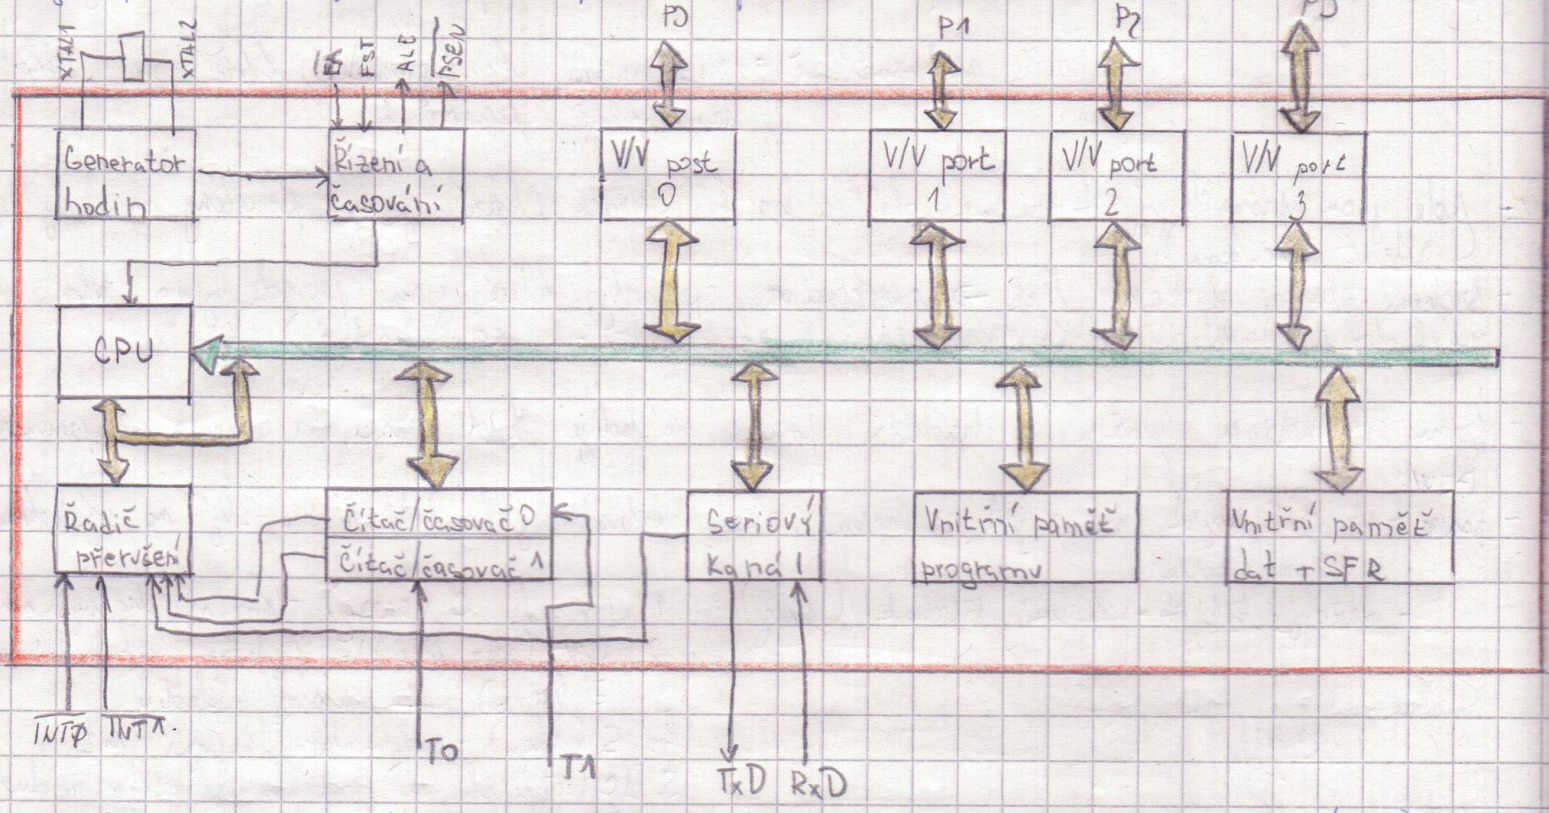 XTAL1
XTAL2
EA
RST
ALE
PSEN
P0
P1
P2
P3
Generator
hodin
Řízení a
časování
V/V port
0
V/V port
1
V/V port
2
V/V port
3
CPU
Řadič
přerušení
Čítač/časovač 0
Čítač/časovač 1
Seriový
kanál
Vnitřní paměť
programu
Vnitřní paměť
dat + SFR
INT0
INT1.
T0
T1
TxD
RxD